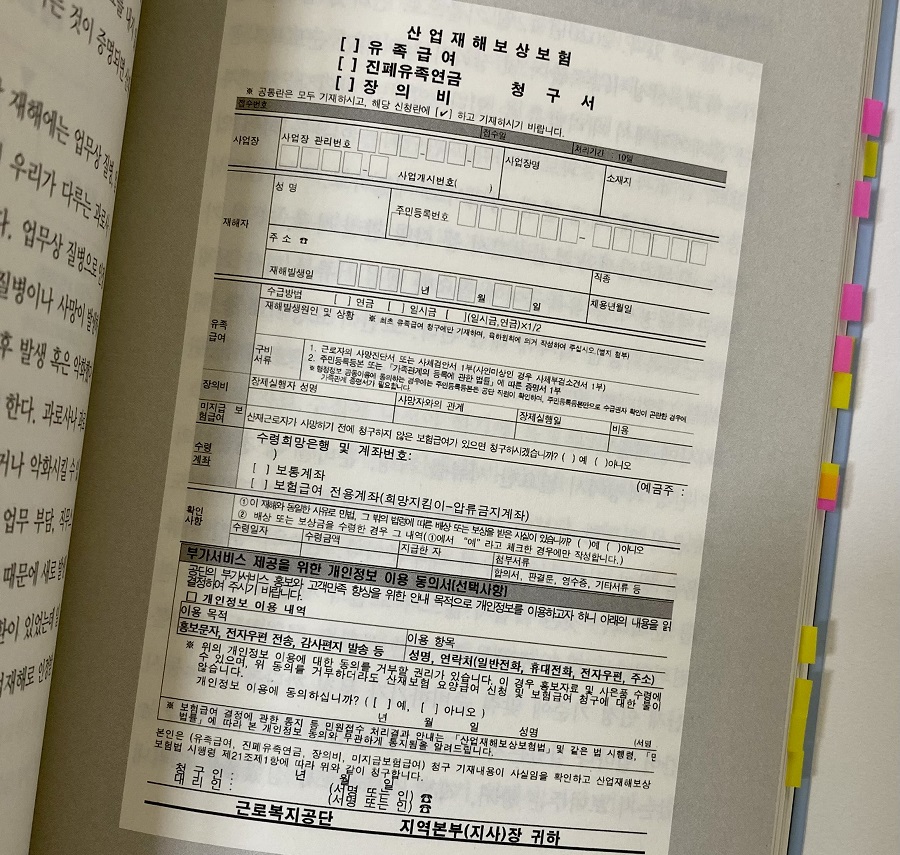 산업재해보상보험
[ ] 유족급여
[ ] 진폐유족연금 청구서
[ ] 장의비
※ 공통란은 모두 기재하시고, 해당 신청란에 [✔] 하고 기재하시기 바랍니다.
접수번호 접수일 처리기간 : 10일
사업장 사업장 관리번호 - - 사업장명 소재지
- 사업개시번호( )
재해자 성 명 주민등록번호 -
주 소 ☎
재해발생일 년 월 일 직종
채용년월일
유족급여 수급방법 [ ] 연금 [ ] 일시금 [ ](일시금,연금)×1/2
재해발생원인 및 상황 ※ 최초 유족급여 청구에만 기재하며, 육하원칙에 의거 작성하여 주십시오.(별지 첨부)
구비서류 1. 근로자의 사망진단서 또는 사체검안서 1부(사인미상인 경우 사체부검소견서 1부)
2. 주민등록등본 또는 「가족관계의 등록에 관한 법률」에 따른 증명서 1부
※ 행정정보 공동이용에 동의하는 경우에는 주민등록등본은 공단 직원이 확인하며, 주민등록등본만으로 수급권자 확인이 곤란한 경우에
가족관계 증명서가 필요합니다.
장의비 장제실행자 성명 사망자와의 관계 장제실행일 비용
미지급 보험급여 산재근로자가 사망하기 전에 청구하지 않은 보험급여가 있으면 청구하시겠습니까? ( ) 예 ( )아니오
수령계좌 수령희망은행 및 계좌번호: (예금주 :
)
[ ] 보통계좌
[ ] 보험급여 전용계좌(희망지킴이-압류금지계좌)
확인사항 ①이 재해와 동일한 사유로 민법, 그 밖의 법령에 따른 배상 또는 보상을 받은 사실이 있습니까? ( )예 ( )아니오
② 배상 또는 보상금을 수령한 경우 그 내역(①에서 "예" 라고 체크한 경우에만 작성합니다.)
수령일자 수령금액 지급한 자 첨부서류
합의서, 판결문, 영수증, 기타서류 등
부가서비스 제공을 위한 개인정보 이용 동의서(선택사항)
공단의 부가서비스 홍보와 고객만족 향상을 위한 안내 목적으로 개인정보를 이용하고자 하니 아래의 내용을 읽
결정하여 주시기 바랍니다.
□ 개인정보 이용 내역
이용 목적 이용 항목
홍보문자, 전자우편 전송, 감사편지 발송 등 성명, 연락처(일반전화, 휴대전화, 전자우편, 주소)
※ 위의 개인정보 이용에 대한 동의를 거부할 권리가 있습니다. 이 경우 홍보자료 및 사은품 수령에
수 있으며, 위 동의를 거부하더라도 산재보험 요양급여 신청 및 보험급여 청구에 대한 불이
않습니다.
개인정보 이용에 동의하십니까? ( [ ] 예, [ ] 아니오 )
년 월 일 성명 (서명
※ 보험급여 결정에 관한 통지 등 민원접수 처리결과 안내는 「산업재해보상보험법」 및 같은 법 시행령,
법률」에 따라 본 개인정보 동의와 무관하게 통지됨을 알려드립니다.
본인은 (유족급여, 진폐유족연금, 장의비, 미지급보험급여) 청구 기재내용이 사실임을 확인하고 산업재해보상
보험법 시행령 제21조제1항에 따라 위와 같이 청구합니다.
년 월 일
청구인 : (서명 또는 인) ☎
대리인 : (서명 또는 인) ☎
근로복지공단 지역본부(지사)장 귀하
것이 증명되면
재해에는 업무상 질병
우리가 다루는 과로사
다. 업무상 질병으로
질병이나 사망이 발생
후 발생 혹은 악화
한다. 과로사나
거나 악화시킬 수
업무 부담,
때문에 새로
환이 있었는데